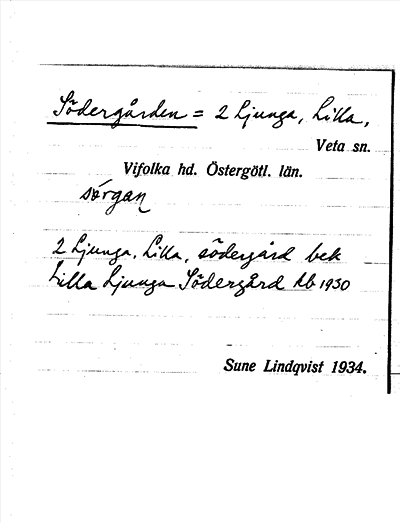 Södergården = 2 Ljunga, Lilla,
Veta sn.
Vifolka hd. Östergötl. län.
sörgan
2 Ljunga, Lilla, södergård bek
Lilla Ljunga Södergård Ab 1930
Sune Lindqvist 1934.